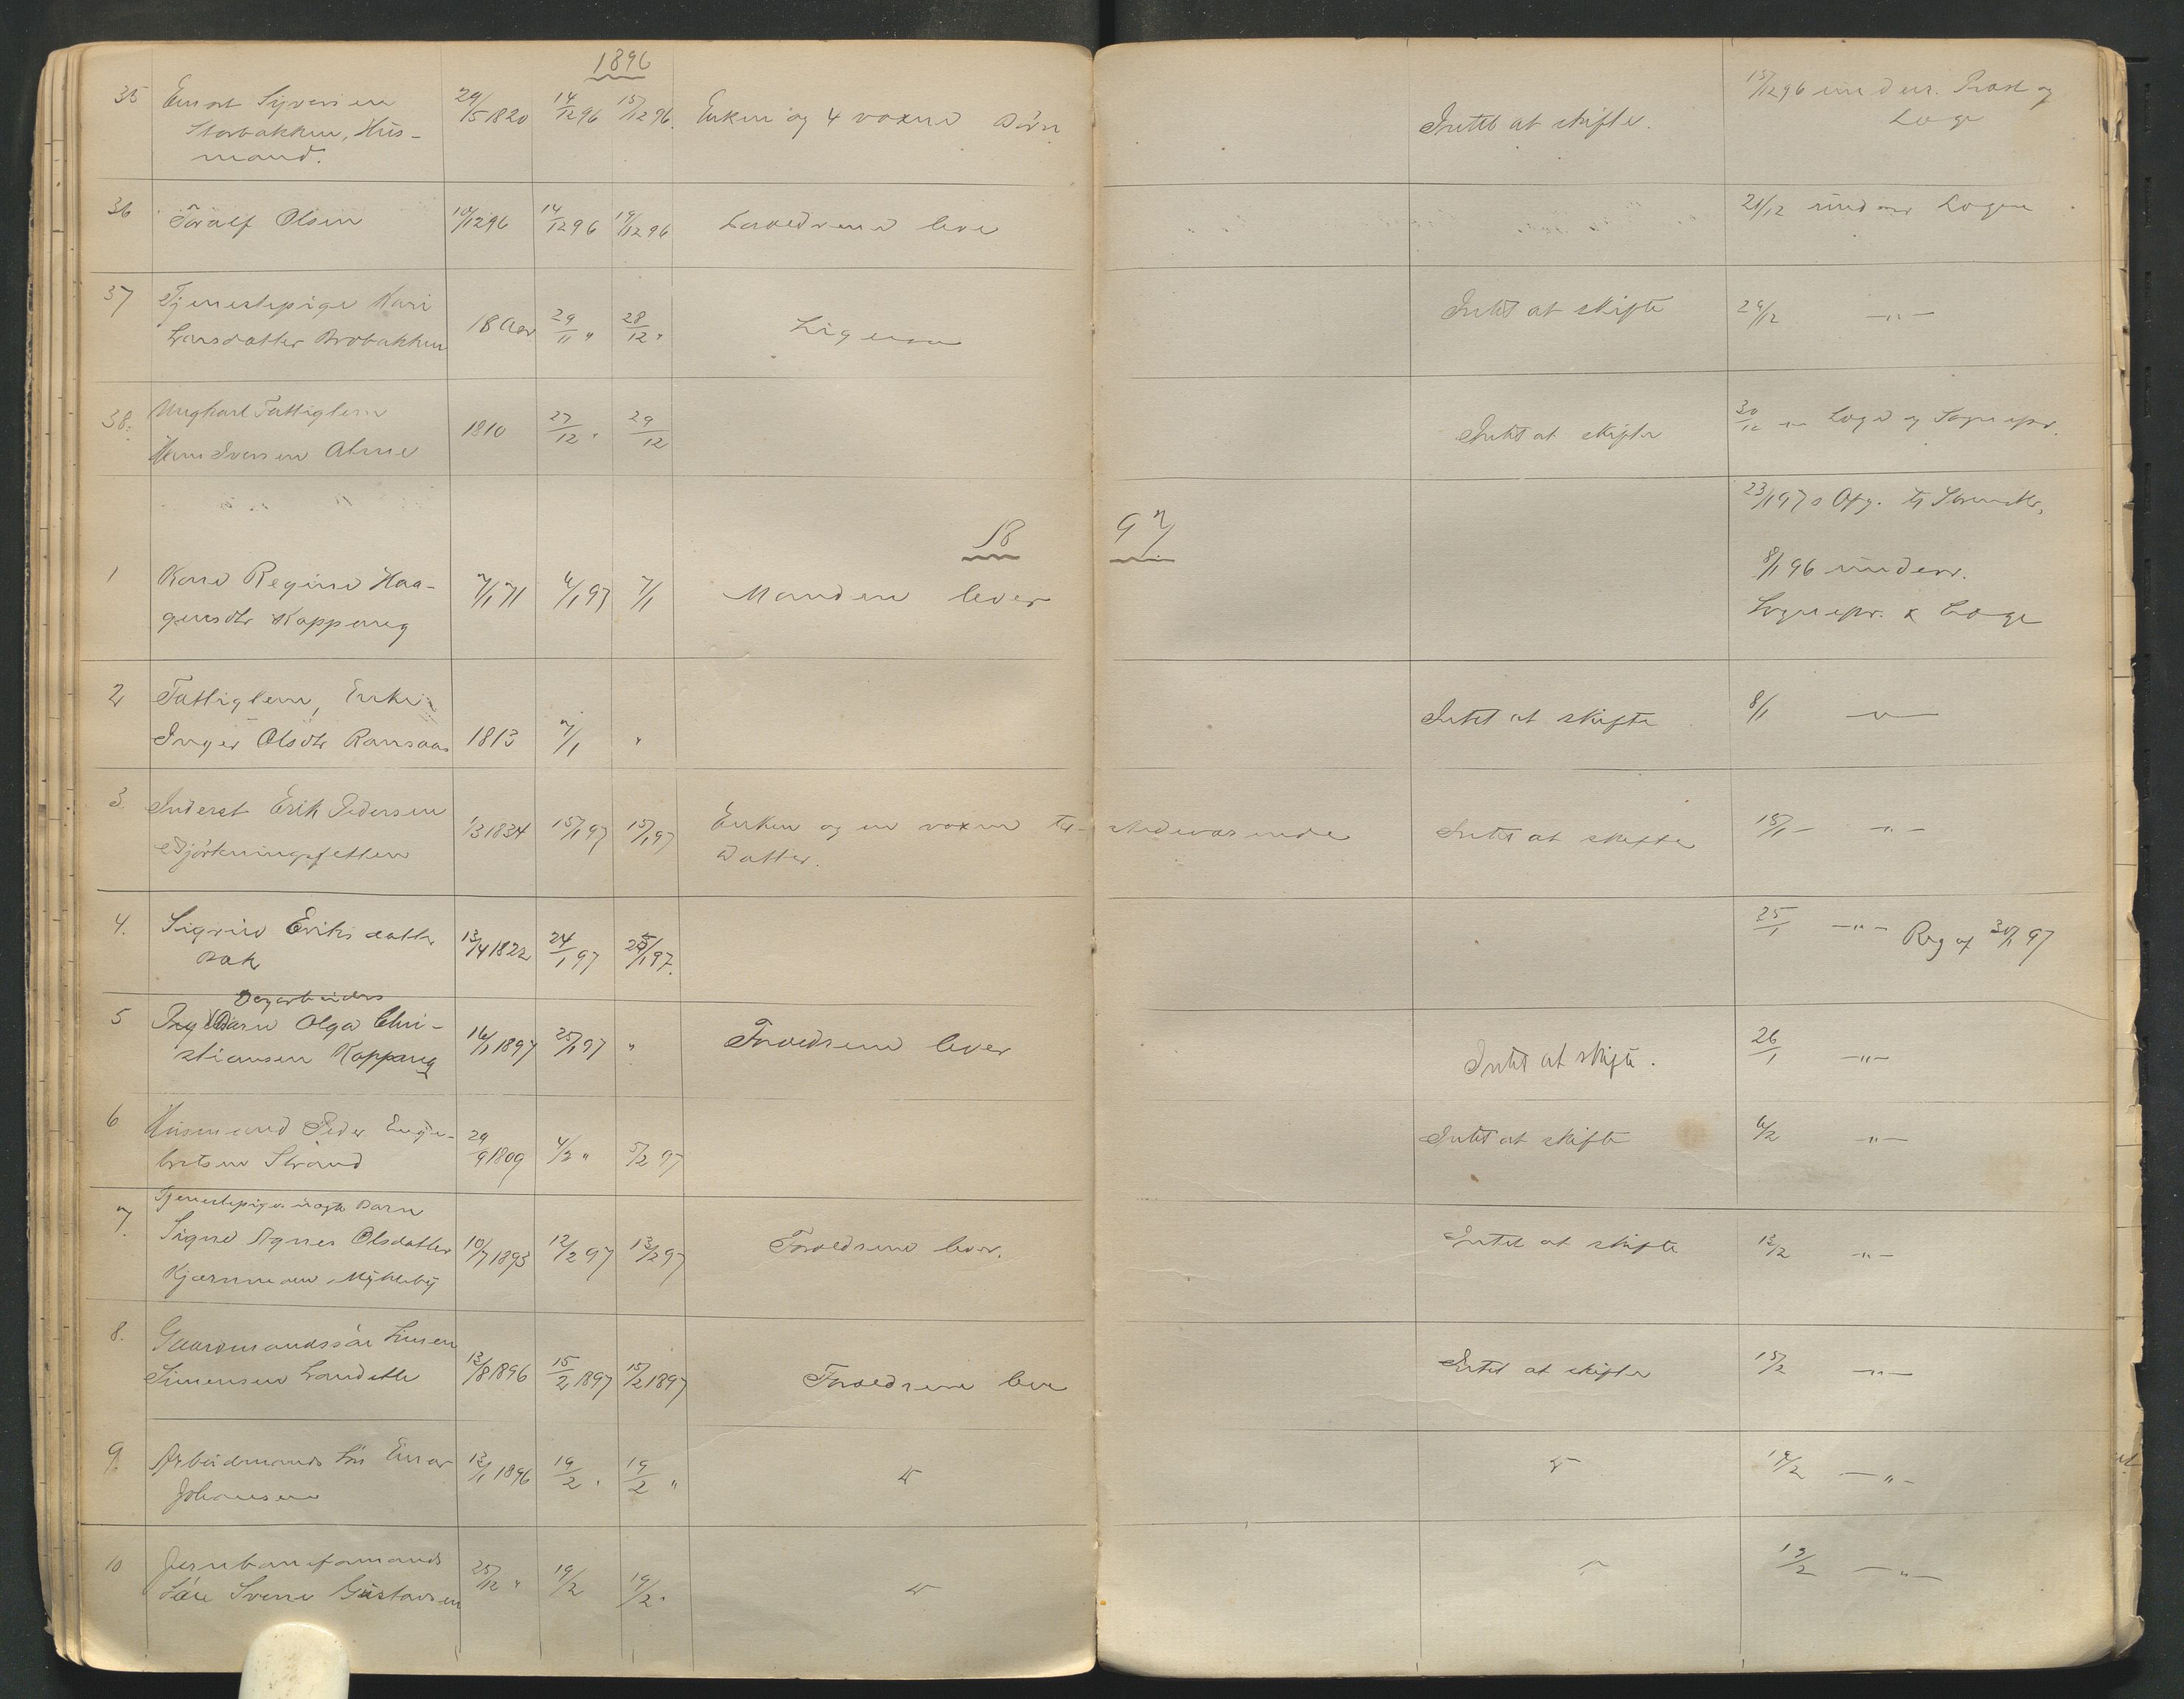 1896
35 Ernst Syversen 29/5 1820 14/12 96 15/12 96. Enken og 4 voxne Børn Intet at skifte. 15/12 96 underr. Præst og
Storbakken, Hus- Læge
mand.
36 Toralf Olsen 10/12 96 14/12 96 19/12 96 Forældrene leve 21/12 underr Lægen
37 Tjenestepige Kari
Larsdatter Brobakken 18 Aar 29/11 " 28/12 " Ligesaa Intet at skifte 29/12 —"—
38. Ungkarl Fattiglem
Hans Iversen Atnæ 1810 27/12 " 29/12 Intet at skifte 30/12 — Læge og Sognepr.
23/1 97 s Opg. til Sorenskr.
18 97
1 Karen Regine Haa- 7/1 71 6/1 97 7/1 Manden lever 8/1 96 underr.
gensdtr Koppang Sognepr. & Læge
2 Fattiglem, Enke
Inger Olsdtr Ramsaas 1813 7/1 " Intet at skifte 8/1 —"—
3. Inderst Erik Pedersen 1/3 1834 15/1 97 15/1 97 Enken og en voxen til- stedeværende Intet at skifte 15/1 — —"—
Datter.
4. Sigrid Eriksdatter 13/4 1822 24/1 97 25/1 97. 25/1 —"— Reg af 30/1 97
Bak
Dagarbeiders
5 Barn Olga Chri- 16/1 1897 25/1 97 " Forældrene lever Intet at skifte. 26/1 —"—
stiansen Koppang
6 Husmand Peder Enge- 29/9 1809 4/2 " 5/2 97 Intet at skifte 6/2 —"—
bretsen Strand
Tjenestepiges uægte Barn
7. Signe Agnes Olsdatter 10/7 1893 12/2 97 13/2 97 Forældrene lever. Intet at skifte 13/2 —"—
Kjærnmoen, Mykleby
8. Gaardmandssøn Simen
Simensen Landet 13/8 1896 15/2 1897 15/2 1897 Forældrene leve Intet at skifte 15/2 —"—
9 Arbeidmands Søn Einar 13/1 1896 19/2 " 19/2 " " " 19/2 —"—
Johansen
10 Jernbaneformands 25/12 " 19/2 19/2 " " " 19/2 —"—
Søn Sverre Gustavsen